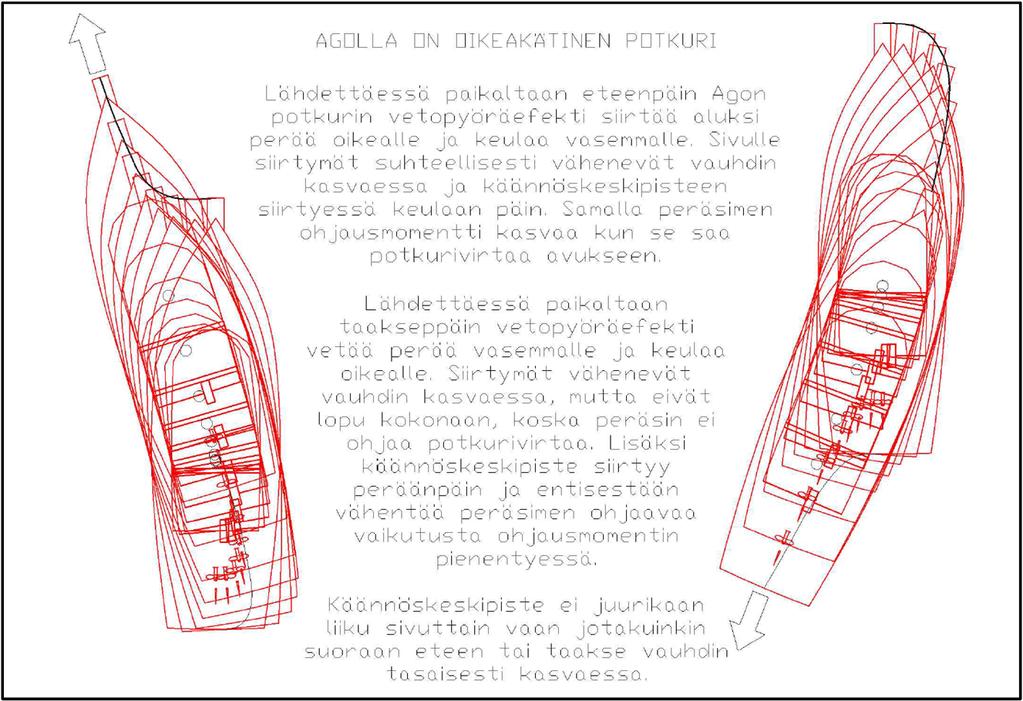 AGOLLA ON OIKEAKÄTINEN POTKURI
Lähdettäessä paikaltaan eteenpäin Agon
potkurin vetopyöräefekti siirtää aluksi
perää oikealle ja keulaa vasemmalle. Sivulle
siirtymät suhteellisesti vähenevät vauhdin
kasvaessa ja käännöskeskipisteen
siirtyessä keulaan päin. Samalla peräsimen
ohjausmomentti kasvaa kun se saa
potkurivirtaa avukseen.
Lähdettäessä paikaltaan
taakseppäin vetopyöräefekti
vetää perää vasemmalle ja keulaa
oikealle. Siirtymät vähenevät
vauhdin kasvaessa, mutta eivät
lopu kokonaan, koska peräsin ei
ohjaa potkurivirtaa. Lisäksi
käännöskeskipiste siirtyy
peräänpäin ja entisestään
vähentää peräsimen ohjaavaa
vaikutusta ohjausmomentin
pienentyessä.
Käännöskeskipiste ei juurikaan
liiku sivuttain vaan jotakuinkin
suoraan eteen tai taakse vauhdin
tasaisesti kasvaessa.